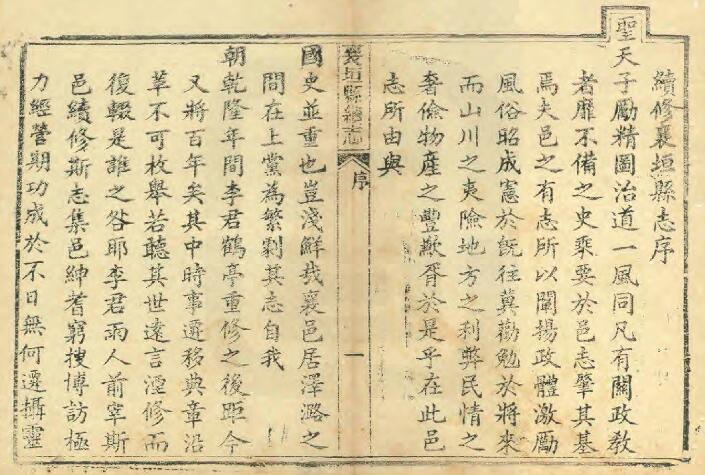 續修襄垣縣志序
聖天子勵精圖治道一風同凡有關政教
者靡不備之史乘要於邑志肇其基
焉夫邑之有志所以闡揚政體激勵
風俗昭成憲於既往冀勸勉於將來
而山川之夷險地方之利弊民情之
奢儉物產之豐歉胥於是乎在此邑
志所由與
襄垣縣續志
序
一
國史並重也豈淺鮮哉襄邑居澤潞之
間在上黨為繁劇其志自我
朝乾隆年間李君鶴亭重修之後距今
又將百年矣其中時事遷移典章沿
革不可枚舉若聽其世遠言湮修而
復輟是誰之咎耶李君雨人前宰斯
邑續修斯志集邑紳耆窮搜博訪極
力經營期功成於不日無何遷攝靈